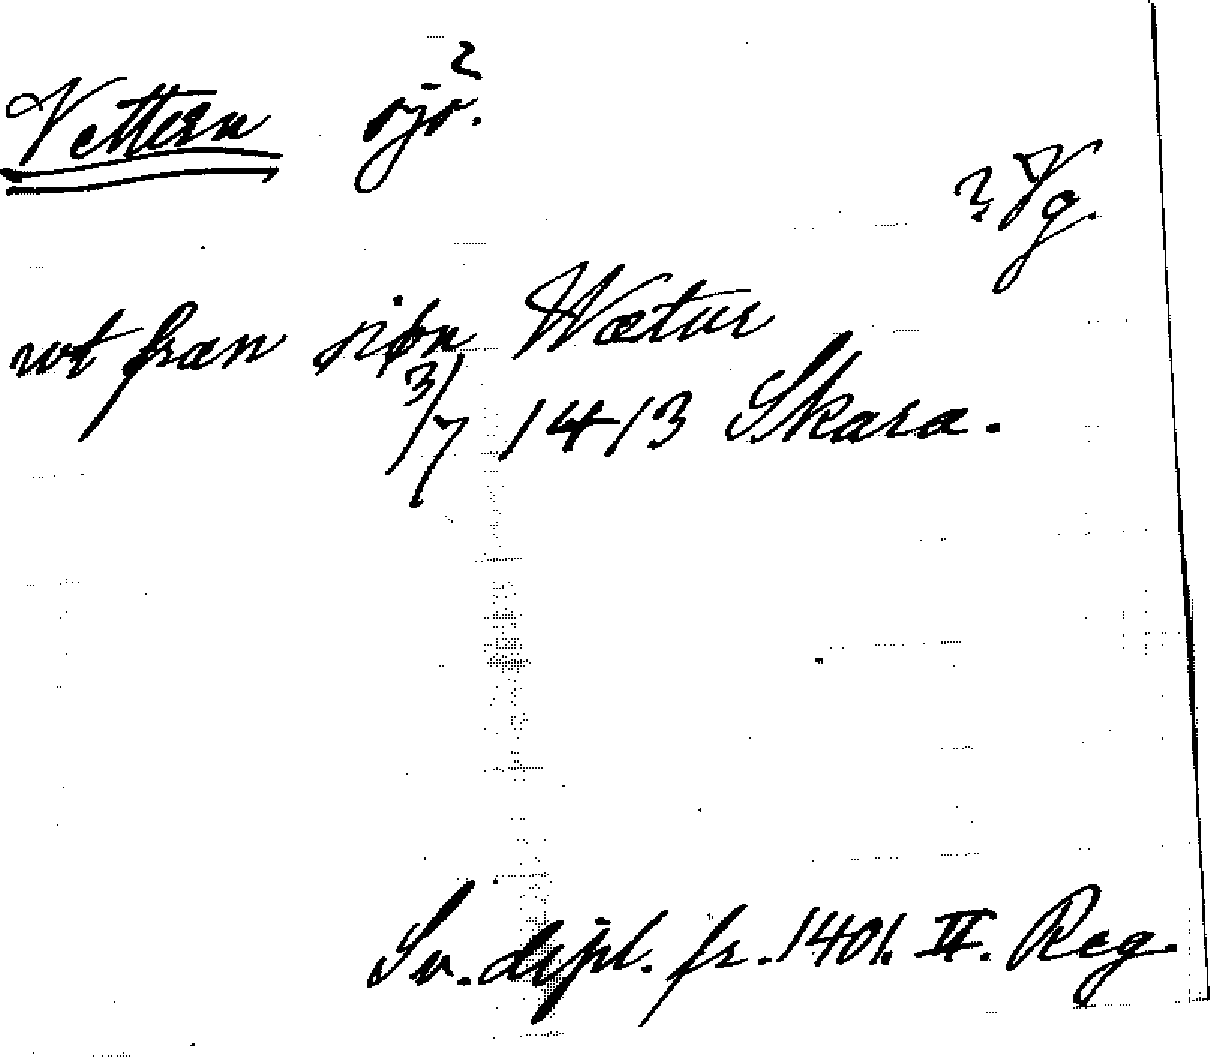 Vettern sjö. 2
? Vg.
wt fran siøn Wætur
3/7 1413 Skara.
Sv. dipl. fr. 1401. II. Reg.